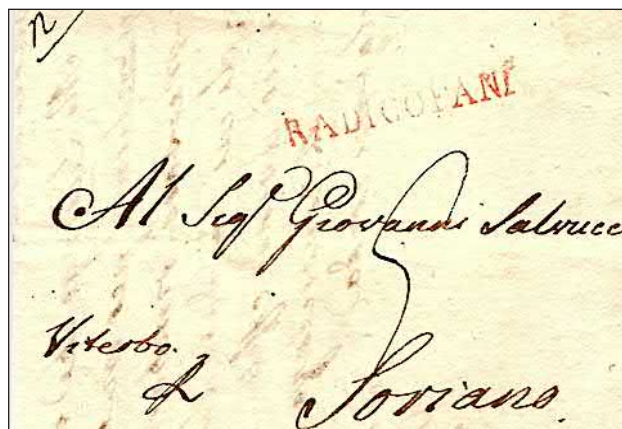 RADICOFANI
Al Sigr Giovanni Salvucc
Viterbo.
Soriano